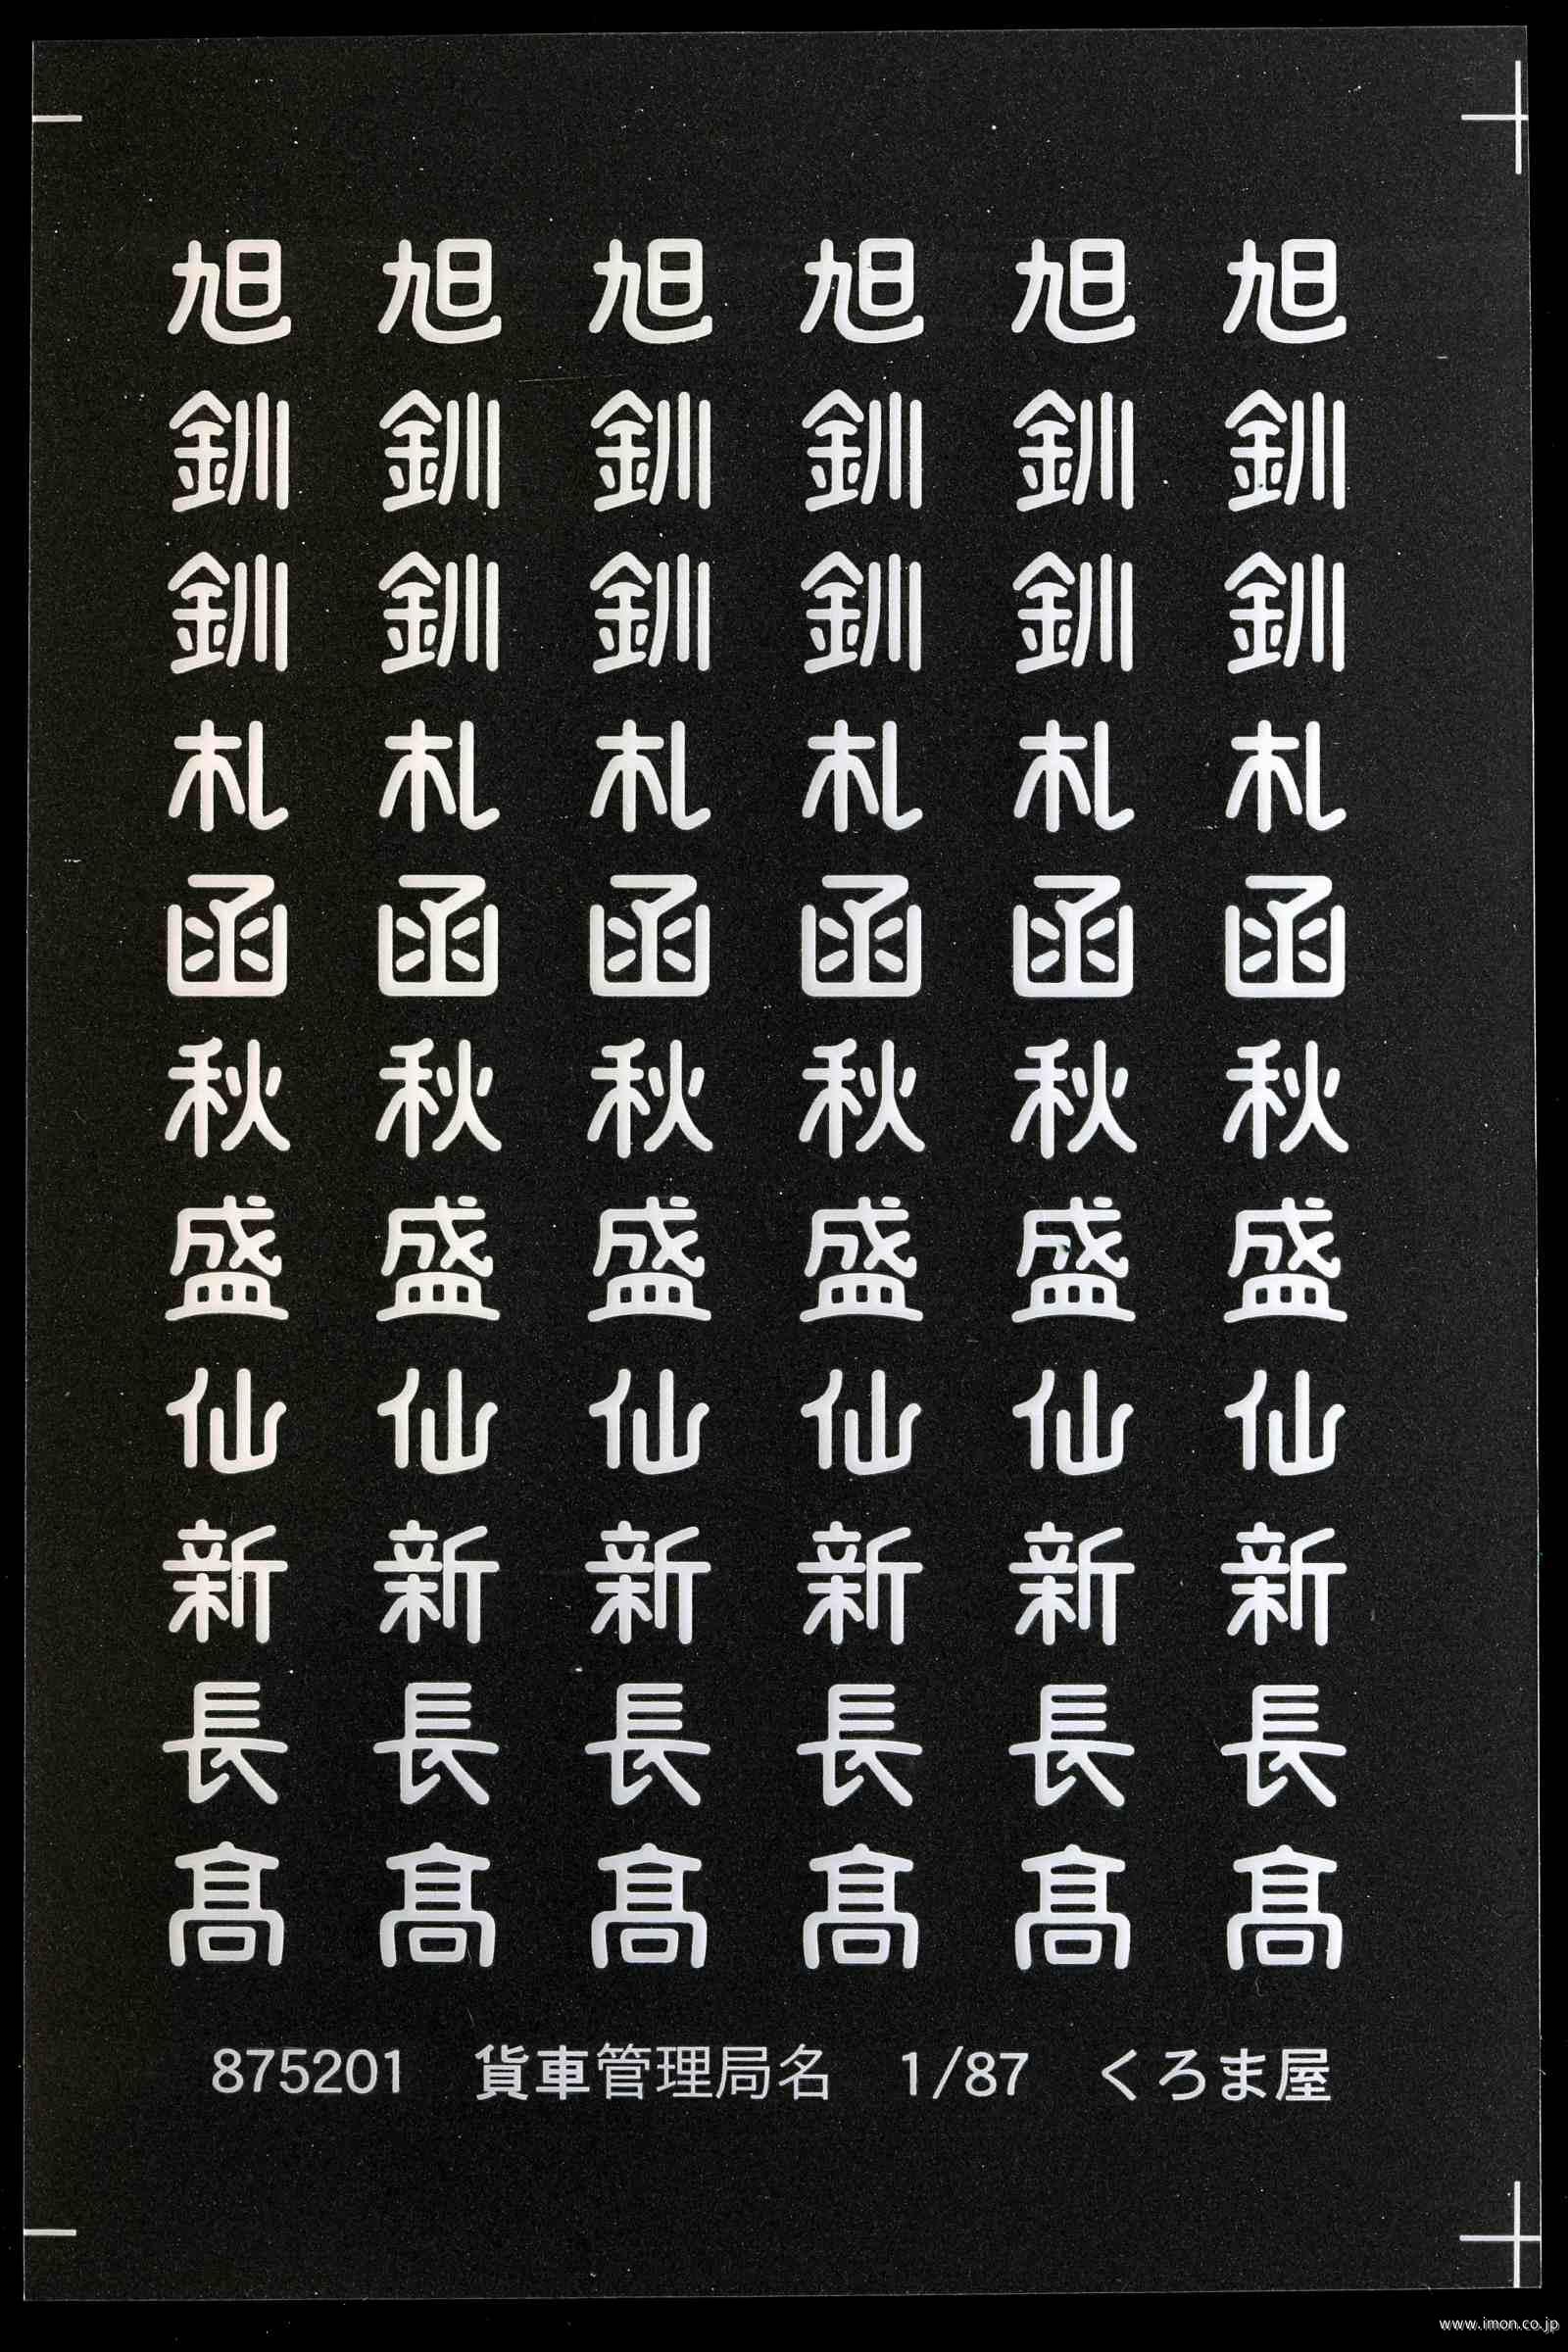 旭 旭 旭 旭 旭 旭
釧 釧 釧 釧 釧 釧
釧 釧 釧 釧 釧 釧
札 札 札 札 札 札
函 函 函 函 函 函
秋 秋 秋 秋 秋 秋
盛 盛 盛 盛 盛 盛
仙 仙 仙 仙 仙 仙
新 新 新 新 新 新
長 長 長 長 長 長
髙 髙 髙 髙 髙 髙
875201 貨車管理局名 1/87 くろま屋
www.imon.co.jp